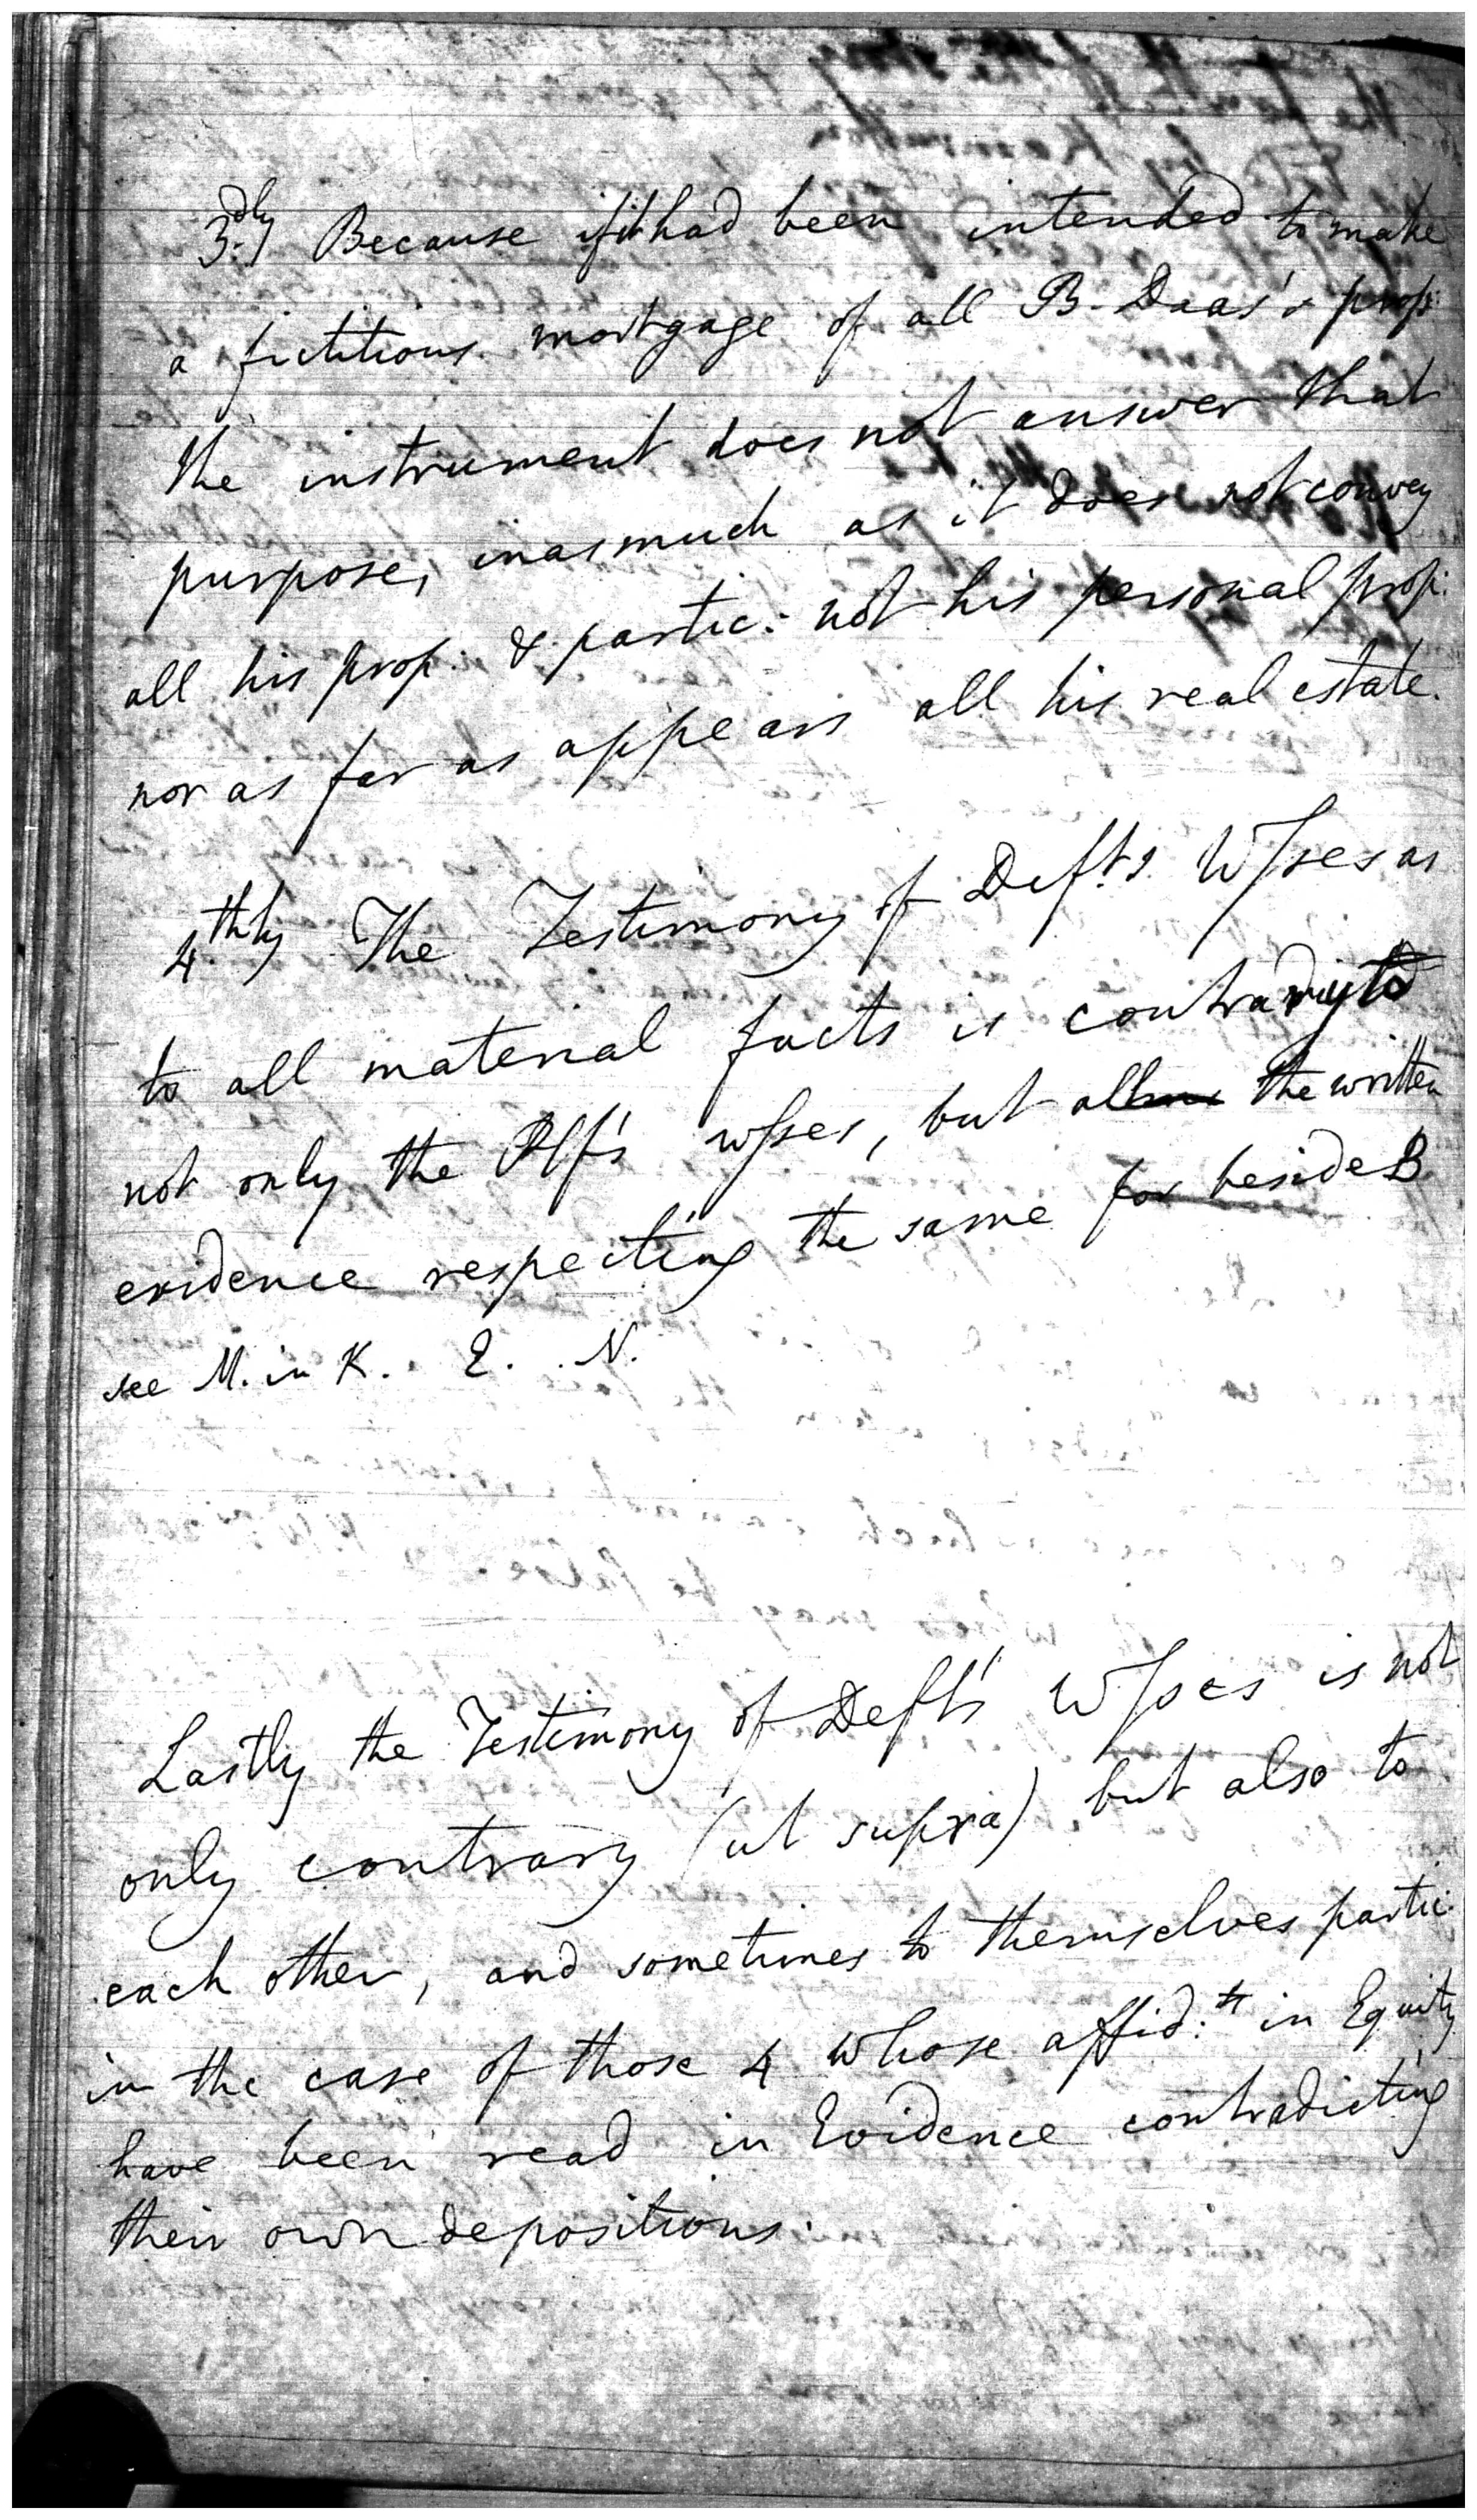 3.dly Because if it had been intended to make
a fictitious mortgage of all B. Daas's prop:
the instrument does not answer that
purpose, inasmuch as it does not convey
all his prop: & partic: not his personal prop:
nor as far as appears all his real estate.
4.thly The Testimony of Deft.s Wſses as
to all material facts is contrary to
not only the Plf's wſses, but all the written
evidence respecting the same for beside B
see M. in K. E. N.
Lastly the Testimony of Deft's Wſses is not
only contrary (ut supra) but also to
each other, and sometimes to themselves partic:
in the case of those 4 whose affid:ts in Equity
have been read in Evidence contradicting
their own depositions.